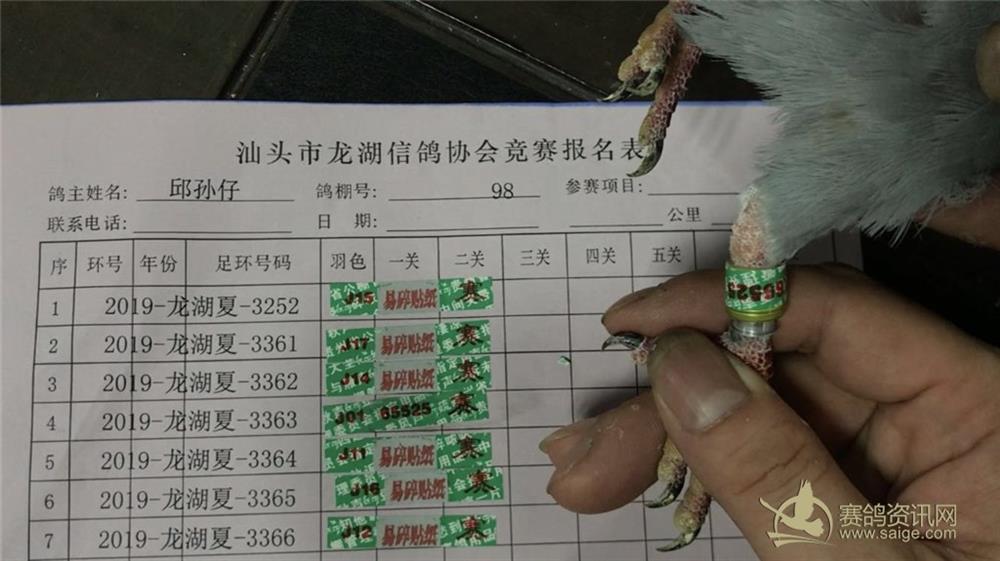 汕头市龙湖信鸽协会竞赛报名表
鸽主姓名: 邱孙仔 鸽棚号: 98 参赛项目:
联系电话: 日 期: 公里
序 环号 年份 足环号码 羽色 一关 二关 三关 四关 五关
1 2019-龙湖夏-3252 J15 易碎贴纸 赛
2 2019-龙湖夏-3361 J17 易碎贴纸 赛
3 2019-龙湖夏-3362 J14 易碎贴纸 赛
4 2019-龙湖夏-3363 J01 65525 赛
5 2019-龙湖夏-3364 J11 易碎贴纸 赛
6 2019-龙湖夏-3365 J16 易碎贴纸 赛
7 2019-龙湖夏-3366 J12 易碎贴纸 赛
65525
赛鸽资讯网
www.saige.com